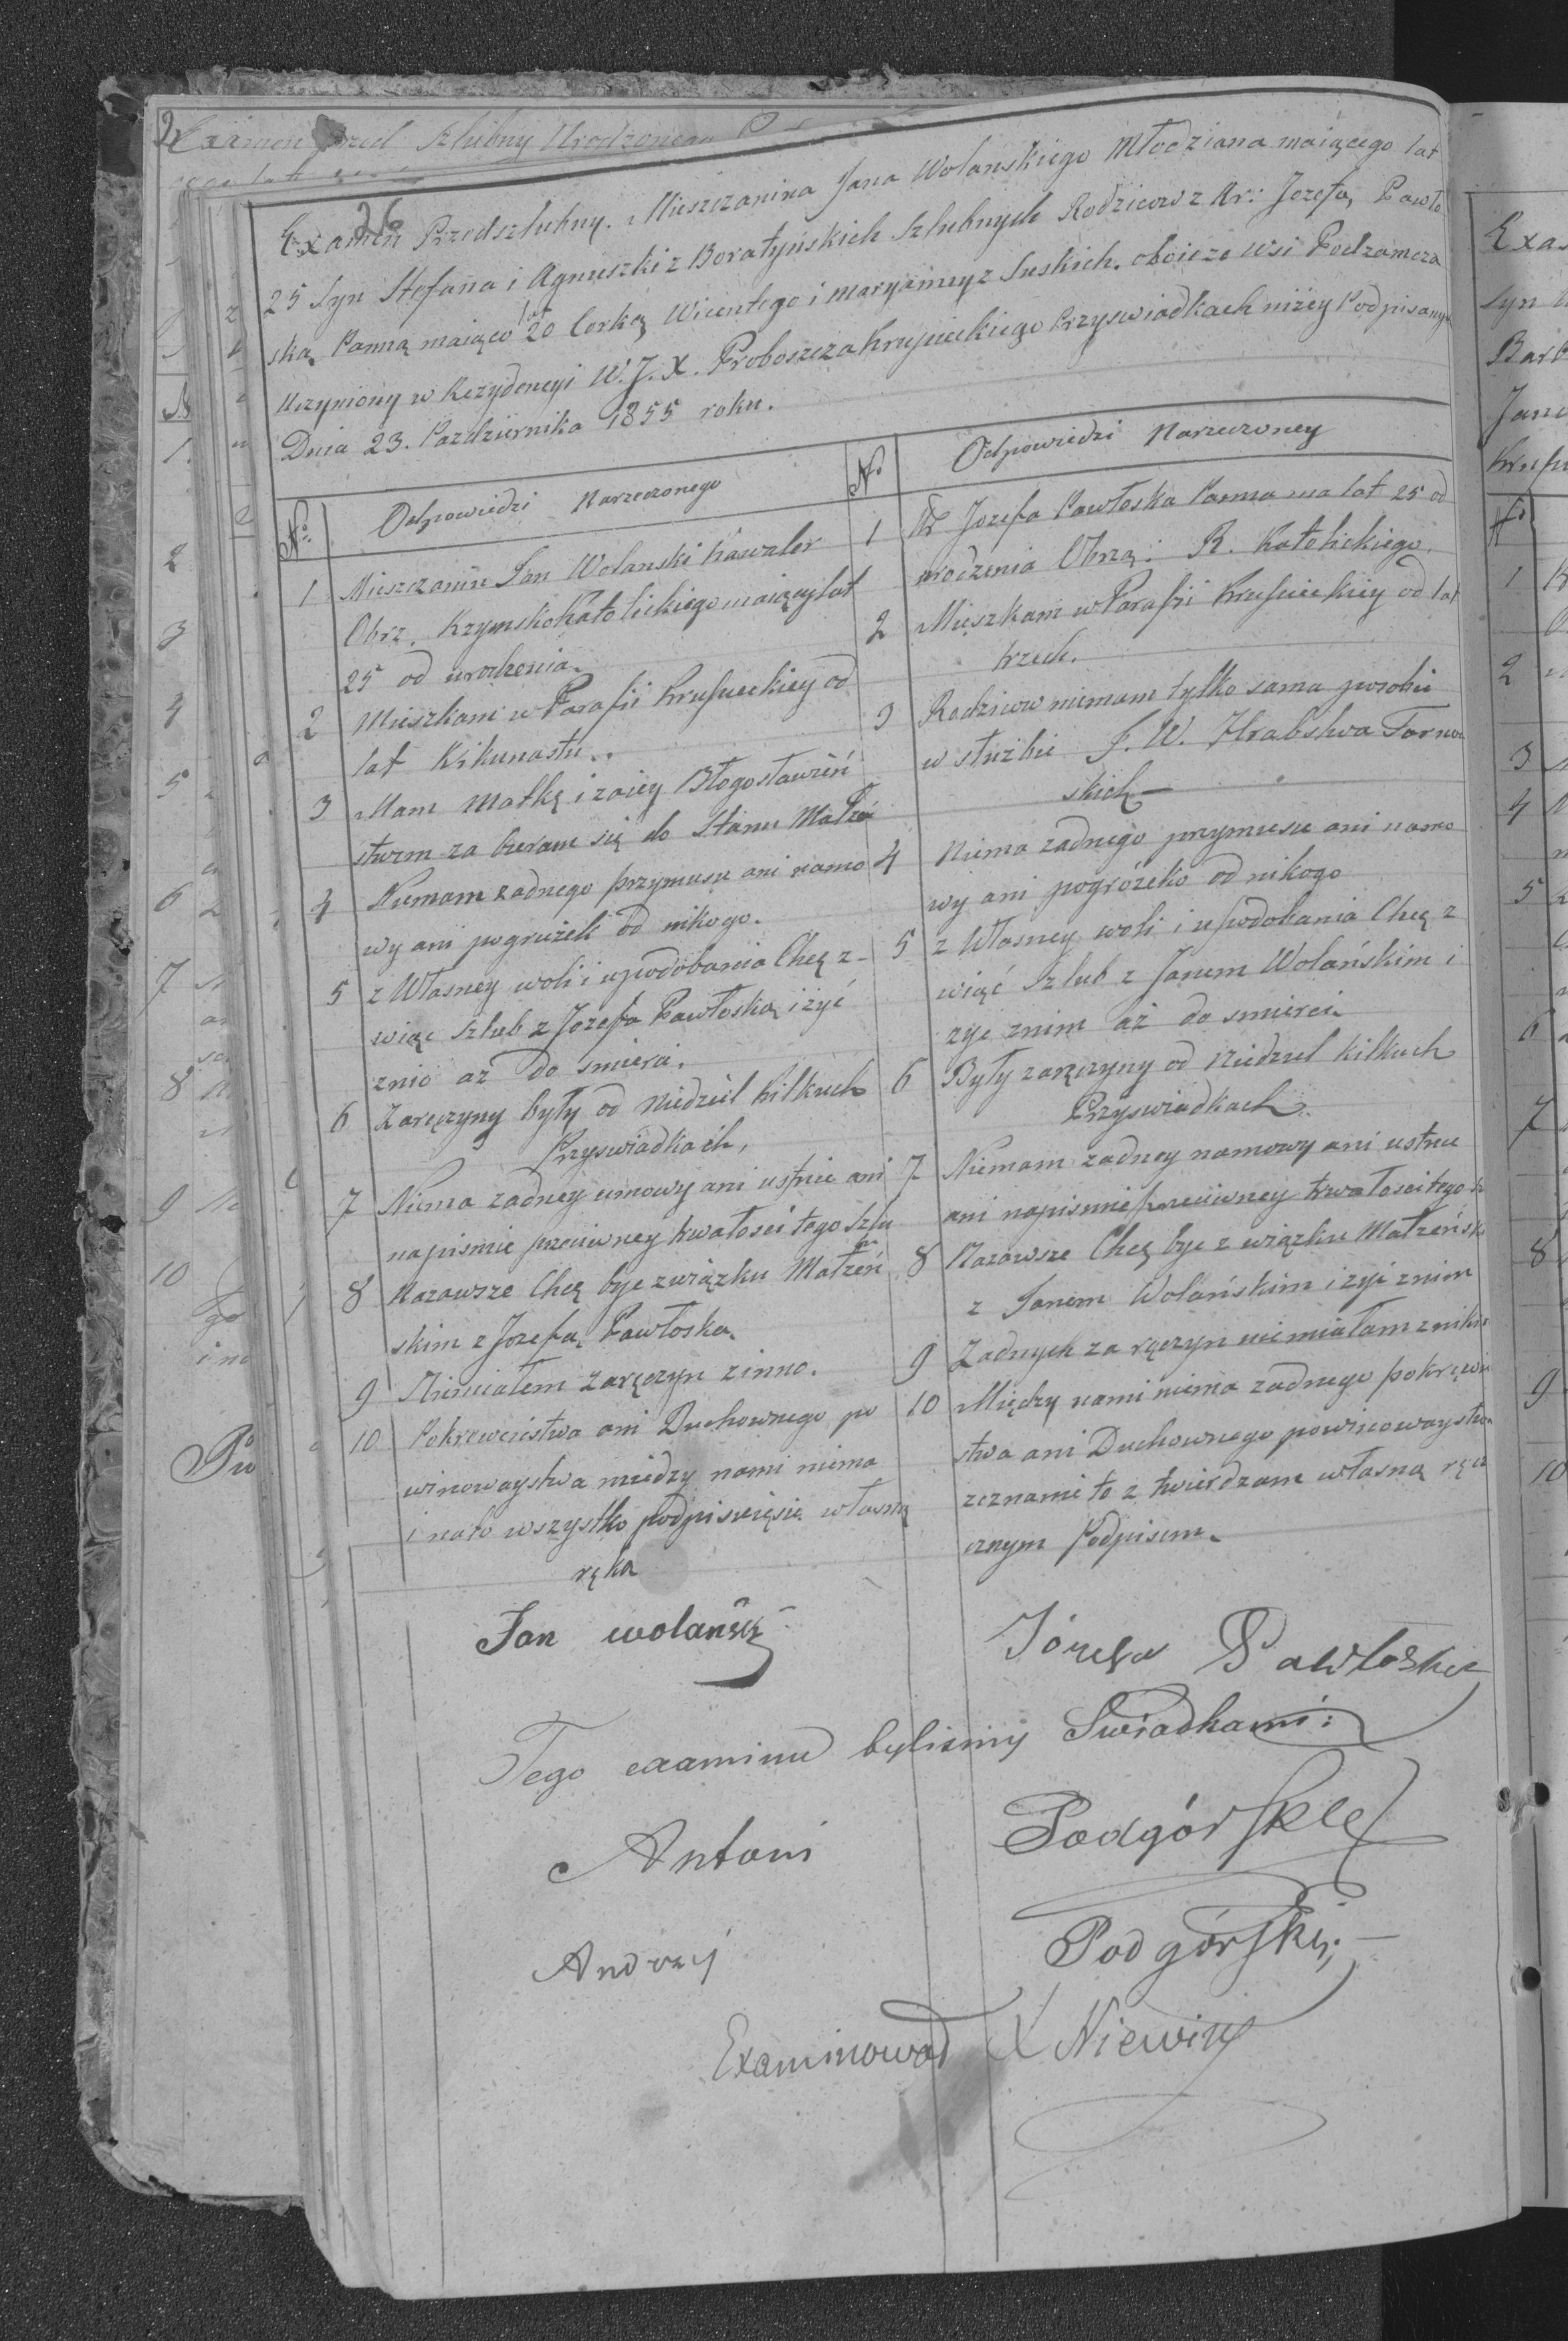 26
Examen Przedszlubny. Mieszczanina Jana Wolanskiego Młodziana maiącego lat
25 Syn Stefana i Agnieszki z Boratyńskich Szlubnych Rodzicow z Ur: Jozefą Pawło
ską Panną maiąco lat 20 Corką Wicentego i maryanny z Suskich. oboie ze wsi Podzamcza
uczyniony w Rezydencyi W. J. X. Proboszcza Krupieckiego przyswiadkach niżey Podpisanych
Dnia 23. Pazdziernika 1855 roku.
No: Odpowiedzi Narzeczonego
1 Mieszczanin Jan Wolanski kawaler
Obrz. Rzymsko Katolickiego maiący lat
25 od urodzenia.
2 Mieszkam w Parafii Krupieckiey od
lat kilkunastu..
3 Mam Matkę i zaiey Błogosławień
stwem za bieram się do Stanu Małżeń
4 Niemam żadnego przymusu ani namo
wy ani pogrużek od nikogo.
5 z Własney woli i upodobania Chcę z-
wiąc Szlub z Jozefą Pawłoską i żyć
znio aż do smierci.
6 Zaręczyny były od Niedziel kilkuch
Przyswiadkach,
7 Niema żadney umowy ani ustnie ani
napismie przeciwney trwałosci tego Szlu
8 Nazawsze Chcę byc związku Małżeń
skim z Jozefą Pawłoską
9 Niemiałem zaręczyn zinno.
10 Pokrewieństwa ani Duchownego po
winowaystwa miedzy nami niema
i nato wszystko podpisuięsie własną
ręką
No Odpowiedzi Narzeczoney
1 Ur Jozefa Pawłoska Panna ma lat 25 od
urodzenia Obrzą: R. Katolickiego.
2 Mieszkam w Parafii Krupieckiey od lat
trzech.
3 Rodzicow niemam tylko sama zsobie
w służbie J. W. Hrabstwa Tarnow
skich
4 Niema żadnego przymusu ani namo
wy ani pogróżeko od nikogo
5 z Własney woli i upodobania Chcę z
wiąć Szlub z Janem Wolańskim i
żyć znim aż do smierci.
6 Były zaręczyny od Niedziel kilkuch
Przyswiadkach.
7 Niemam żadney namowy ani ustnie
ani napismie przeciwney trwałosci tego
8 Nazawsze Chcę byc z wiązku Małżeńsk
z Janem Wolańskim i żyć znim
9 Żadnych za ręczyn niemiałam znikim
10 Między nami niema żadnego pokrewień
stwa ani Duchownego powinowaystwa
zeznanie to z twierdzam własną ręcz
cznym Podpisem.
Jan wolański
Józefa Pawłoska
Tego examinu bylismy Swiadkami:
Antoni Podgórski
Andrzej Podgórski
Examinował X Niewiny